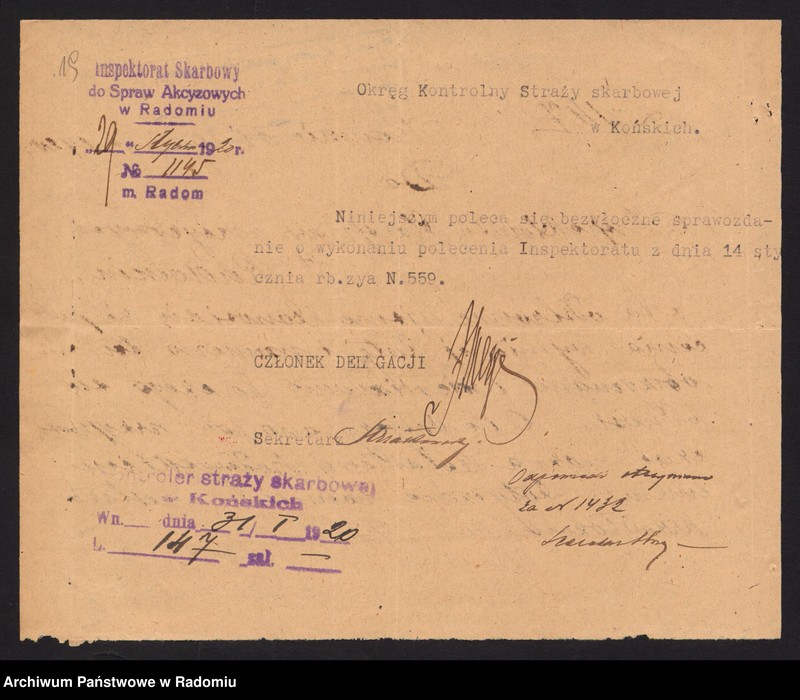 15
Inspektorat Skarbowy
do Spraw Akcyzowych
w Radomiu
"29" stycznia 1920 r.
№ 1145
m. Radom
Okręg Kontrolny Straży skarbowej
w Końskich.
Niniejszym poleca się bezwłoczne sprawozda-
nie o wykonaniu polecenia Inspektoratu z dnia 14 sty
cznia rb.zya N.559.
CZŁONEK DEL GACJI
Sekretarz
Kontroler straży skarbowej
w Końskich
Wn. dnia 31/I 1920
L. 147 zał. —
za N 1432
Archiwum Państwowe w Radomiu